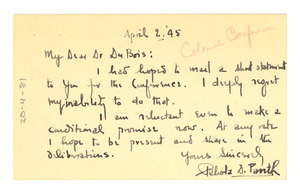 April 2, '45
Colonial Conference
My Dear Dr DuBois:
I had hoped to mail a short statement
to You for the Conference. I deeply regret
my inability to do that.
I am reluctant even to make a
conditional promise now. At any rate
I hope to be present and share in the
deliberations.
Yours Sincerely
D.
20-4-81